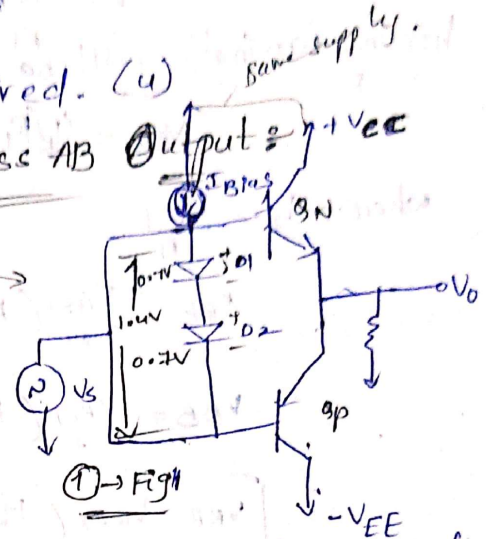 same supply.
red. (4)
ss AB Output :
+ VCC
I Bias
QN
0.7V
+ D1
1.4V
+ D2
0.7V
VO
VS
QP
① → Fig1
-VEE